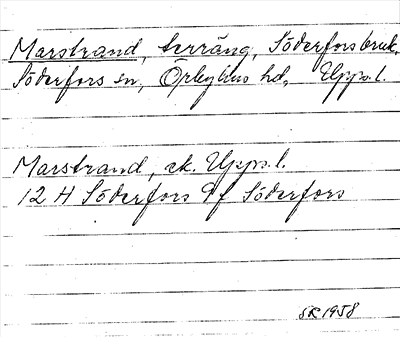 Marstrand, terräng, Söderforsbruk,
Söderfors sn, Örbyhus hd, Upps.l.
Marstrand, ek. Upps.l.
12 H Söderfors 9f Söderfors
SR 1958